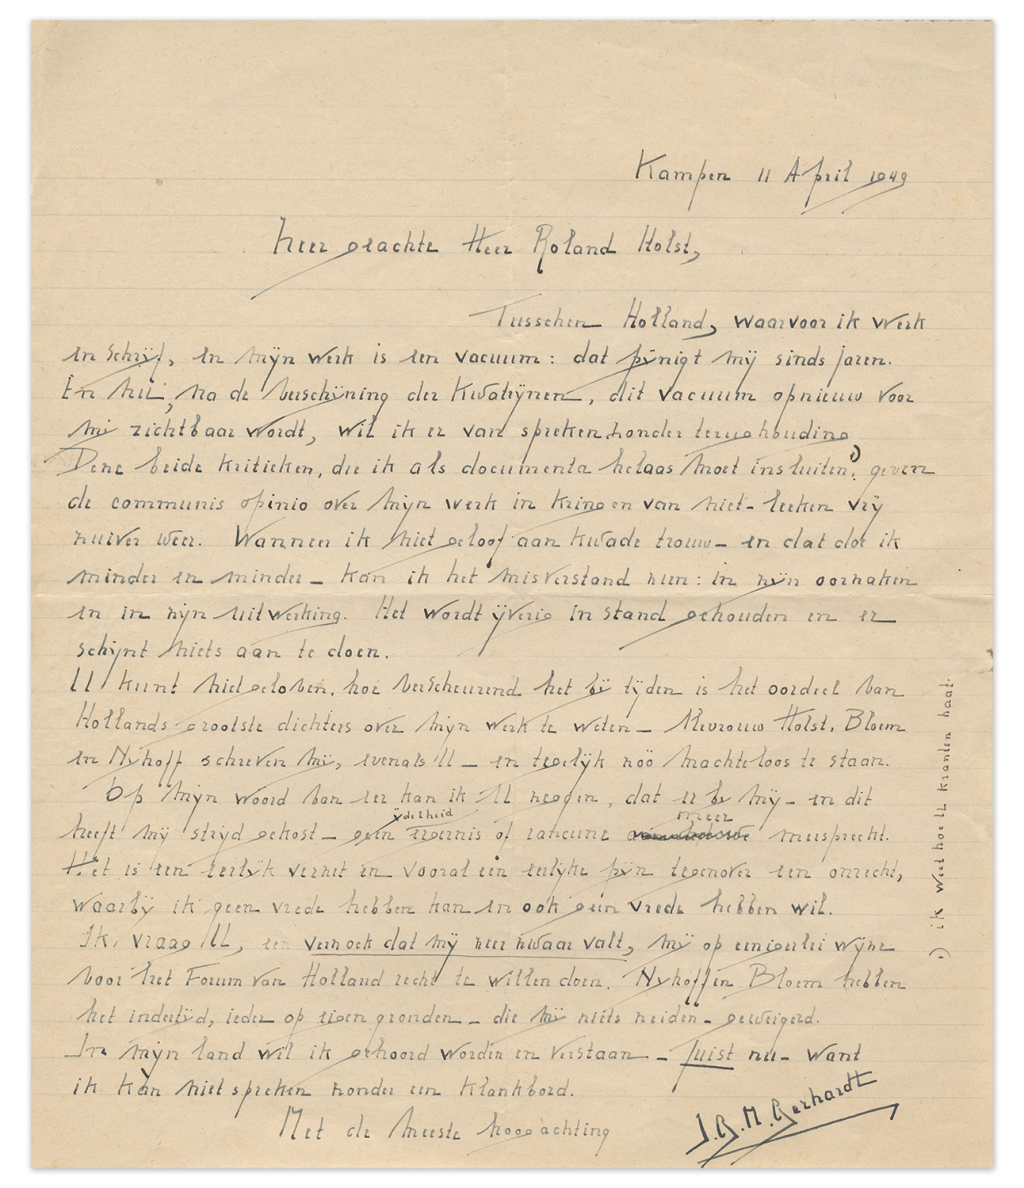 Kampen 11 April 1949
Zeer geachte Heer Roland Holst,
Tusschen Holland, waarvoor ik werk
en schrijf, en mijn werk is een vacuum: dat pijnigt mij sinds jaren.
En nu, na de verschijning der Kwatrijnen, dit vacuum opnieuw voor
mij zichtbaar wordt, wil ik er van spreken zonder terughouding.
Deze beide kritieken, die ik als documenta helaas moet insluiten 1), geven
de communis opinio over mijn werk in kringen van niet-leeken vrij
zuiver weer. Wanneer ik niet geloof aan kwade trouw – en dat doe ik
minder en minder – kan ik het misverstand zien: in zijn oorzaken
en in zijn uitwerking. Het wordt ijverig in stand gehouden en er
schijnt niets aan te doen.
U kunt niet gelooven, hoe verscheurend het bij tijden is het oordeel van
Hollands grootste dichters over mijn werk te weten – Mevrouw Holst, Bloem
en Nijhoff schreven mij, evenals U – en tegelijk zóó machteloos te staan.
Op mijn woord van eer kan ik U zeggen, dat er bij mij – en dit
heeft mij strijd gekost – geen ijdelheid ergernis of rancune meer meespreekt.
Het is een eerlijk verzet en vooral een eerlijke pijn tegenover een onrecht,
waarbij ik geen vrede hebben kan en ook geen vrede hebben wil.
Ik vraag U, een verzoek dat mij zeer zwaar valt, mij op eenigerlei wijze
voor het Forum van Holland recht te willen doen. Nijhoff en Bloem hebben
het indertijd, ieder op eigen gronden – die mij niets zeiden – geweigerd.
In mijn land wil ik gehoord worden en verstaan – juist nu – want
ik kan niet spreken zonder een klankbord.
Met de meeste hoogachting
I.G.M. Gerhardt
1) ik weet hoe U kranten haat.